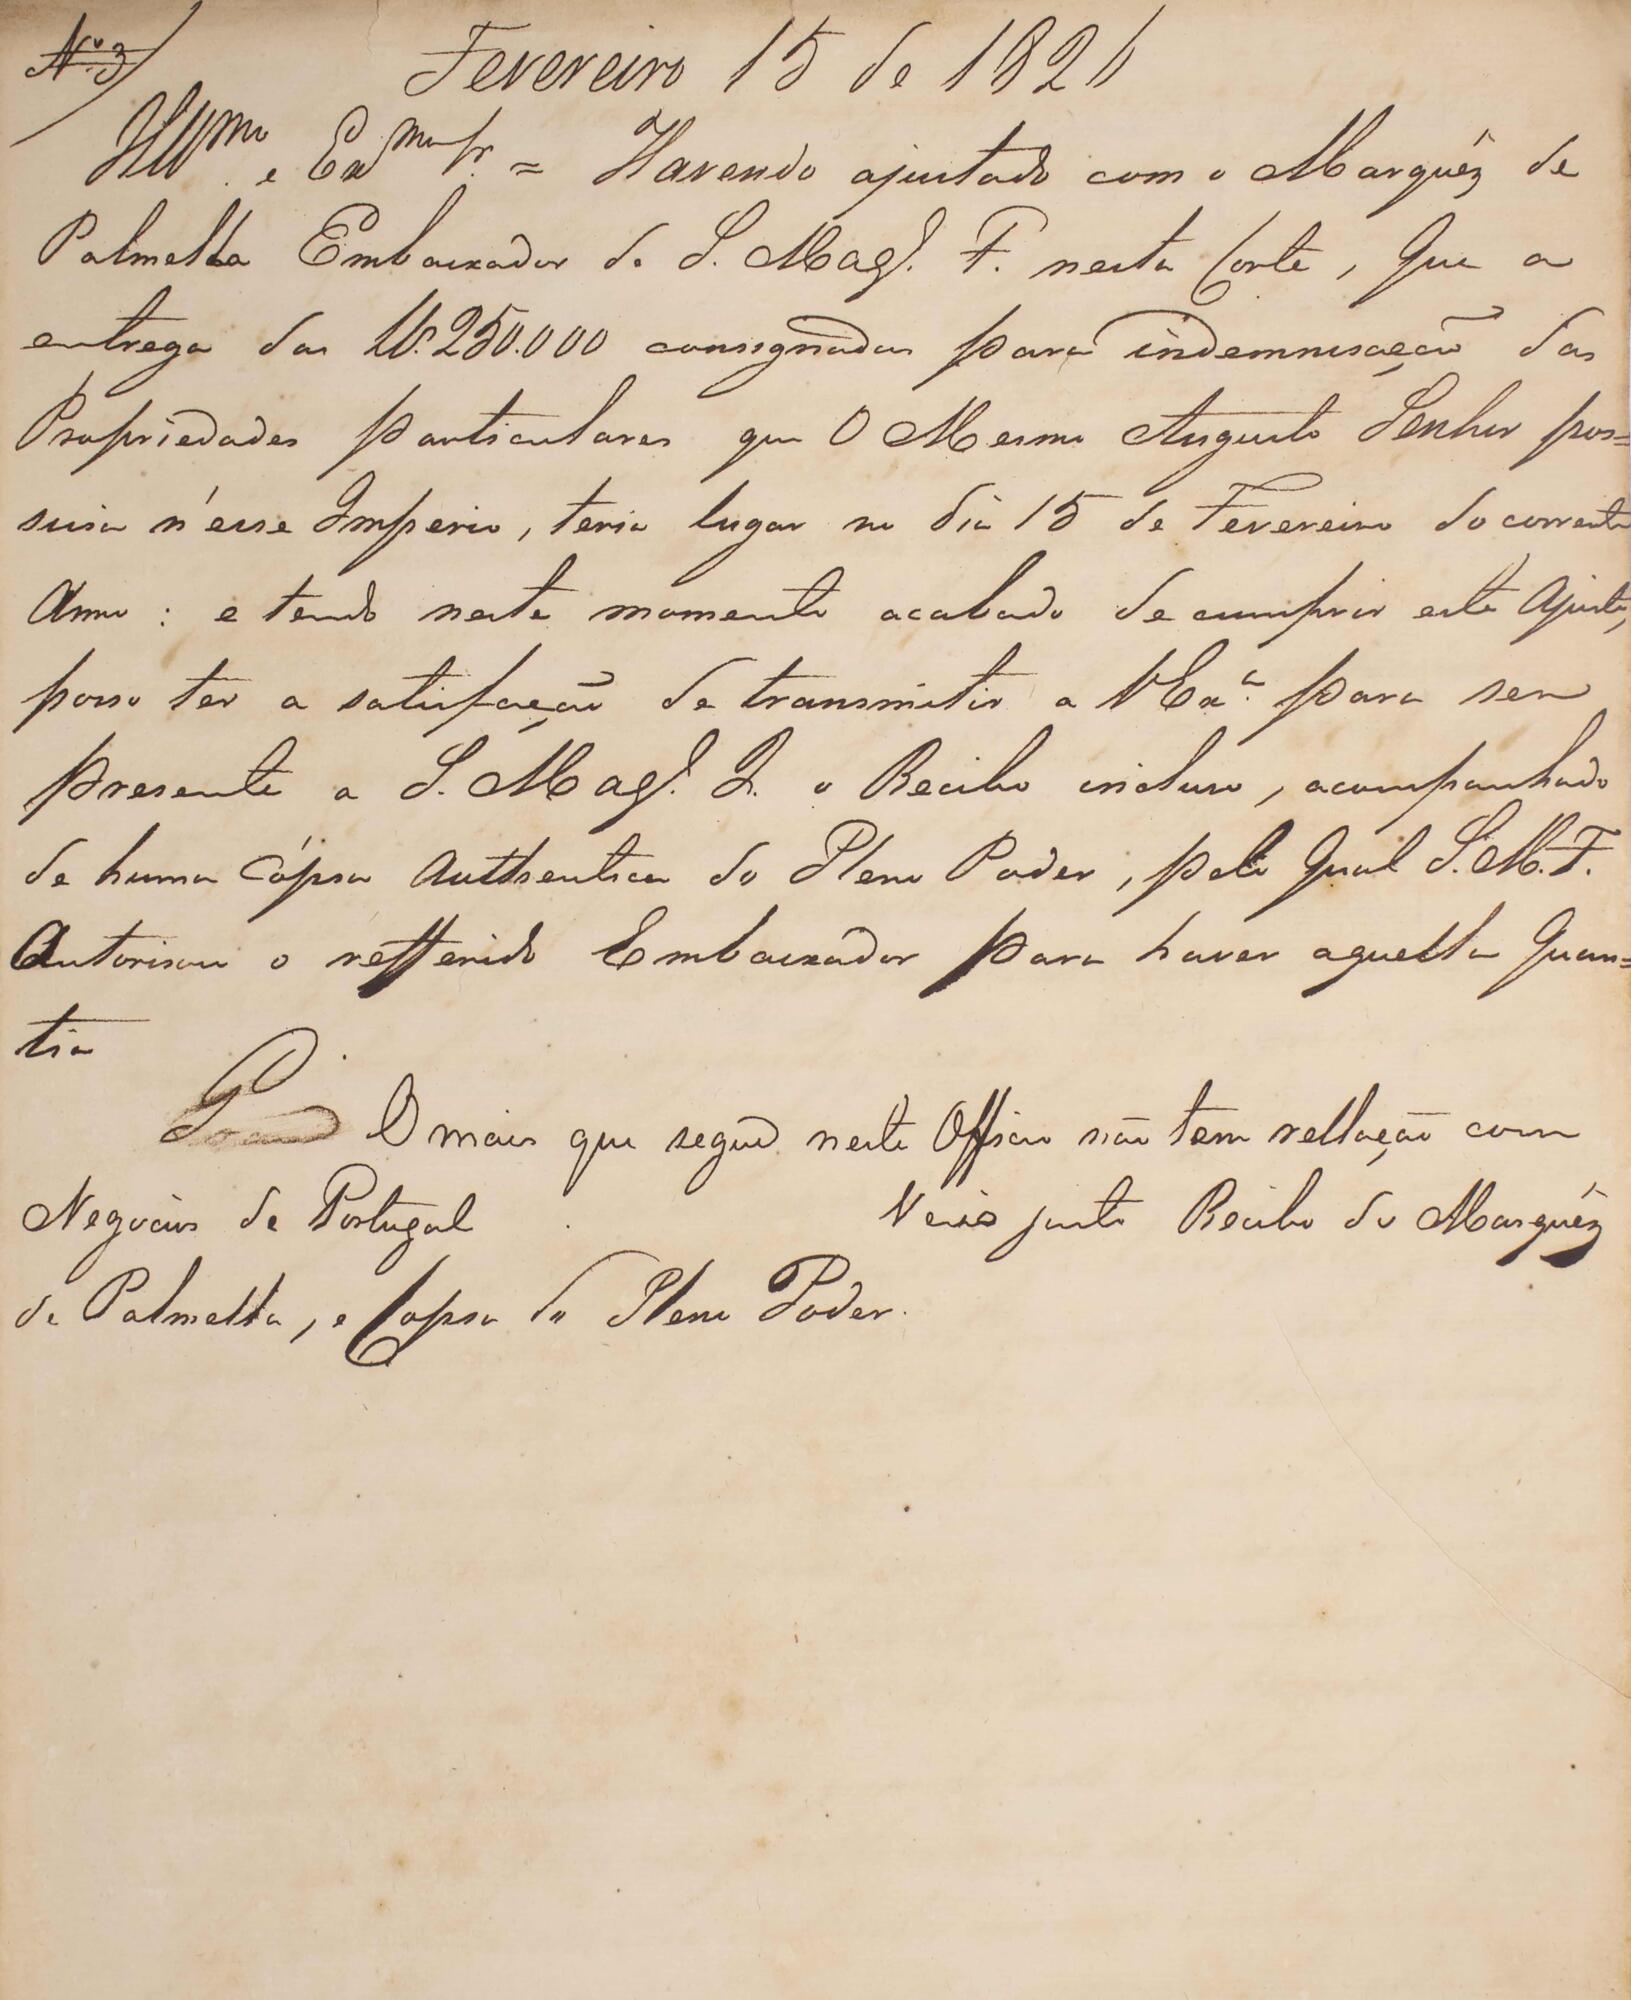 Nº 3
Fevereiro 15 de 1826
Illmo. e Exmo Sr. = Havendo ajustado com o Marquêz de
Palmella Embaixador de S. Magf. F. nesta Corte, que a
entrega das Lb. 250.000 consignadas para indemnisação das
Propriedades particulares que O Mesmo Augusto Senhor pos=
suia n'esse Imperio, teria lugar no dia 15 de Fevereiro do corrente
Anno : e tendo neste momento acabado de cumprir este Ajuste,
posso ter a satisfação de transmitir a VExa. para ser
presente a S. Magf. I. o Recibo incluso, acompanhado
de huma Cópia Authentica do Pleno Poder, pelo qual S.M.F.
Autorisou o refferido Embaixador para haver aquella quan=
tia
O mais que segue neste Officio não tem rellação com
Negocios de Portugal
Veio junto Recibo do Marquêz
de Palmella, e Copia do Pleno Poder.